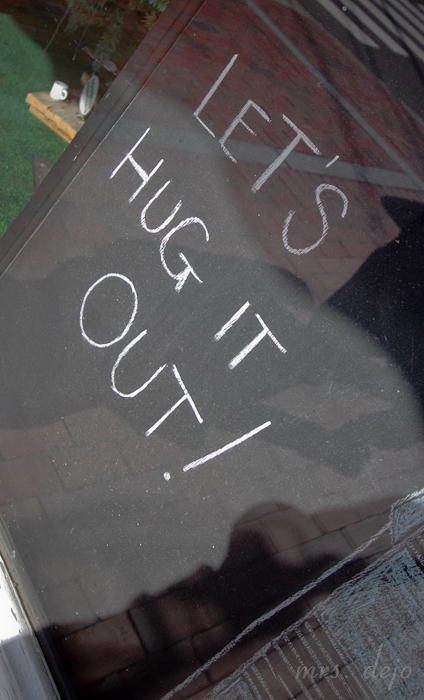 LET'S
HUG IT
OUT!
mrs. dejo